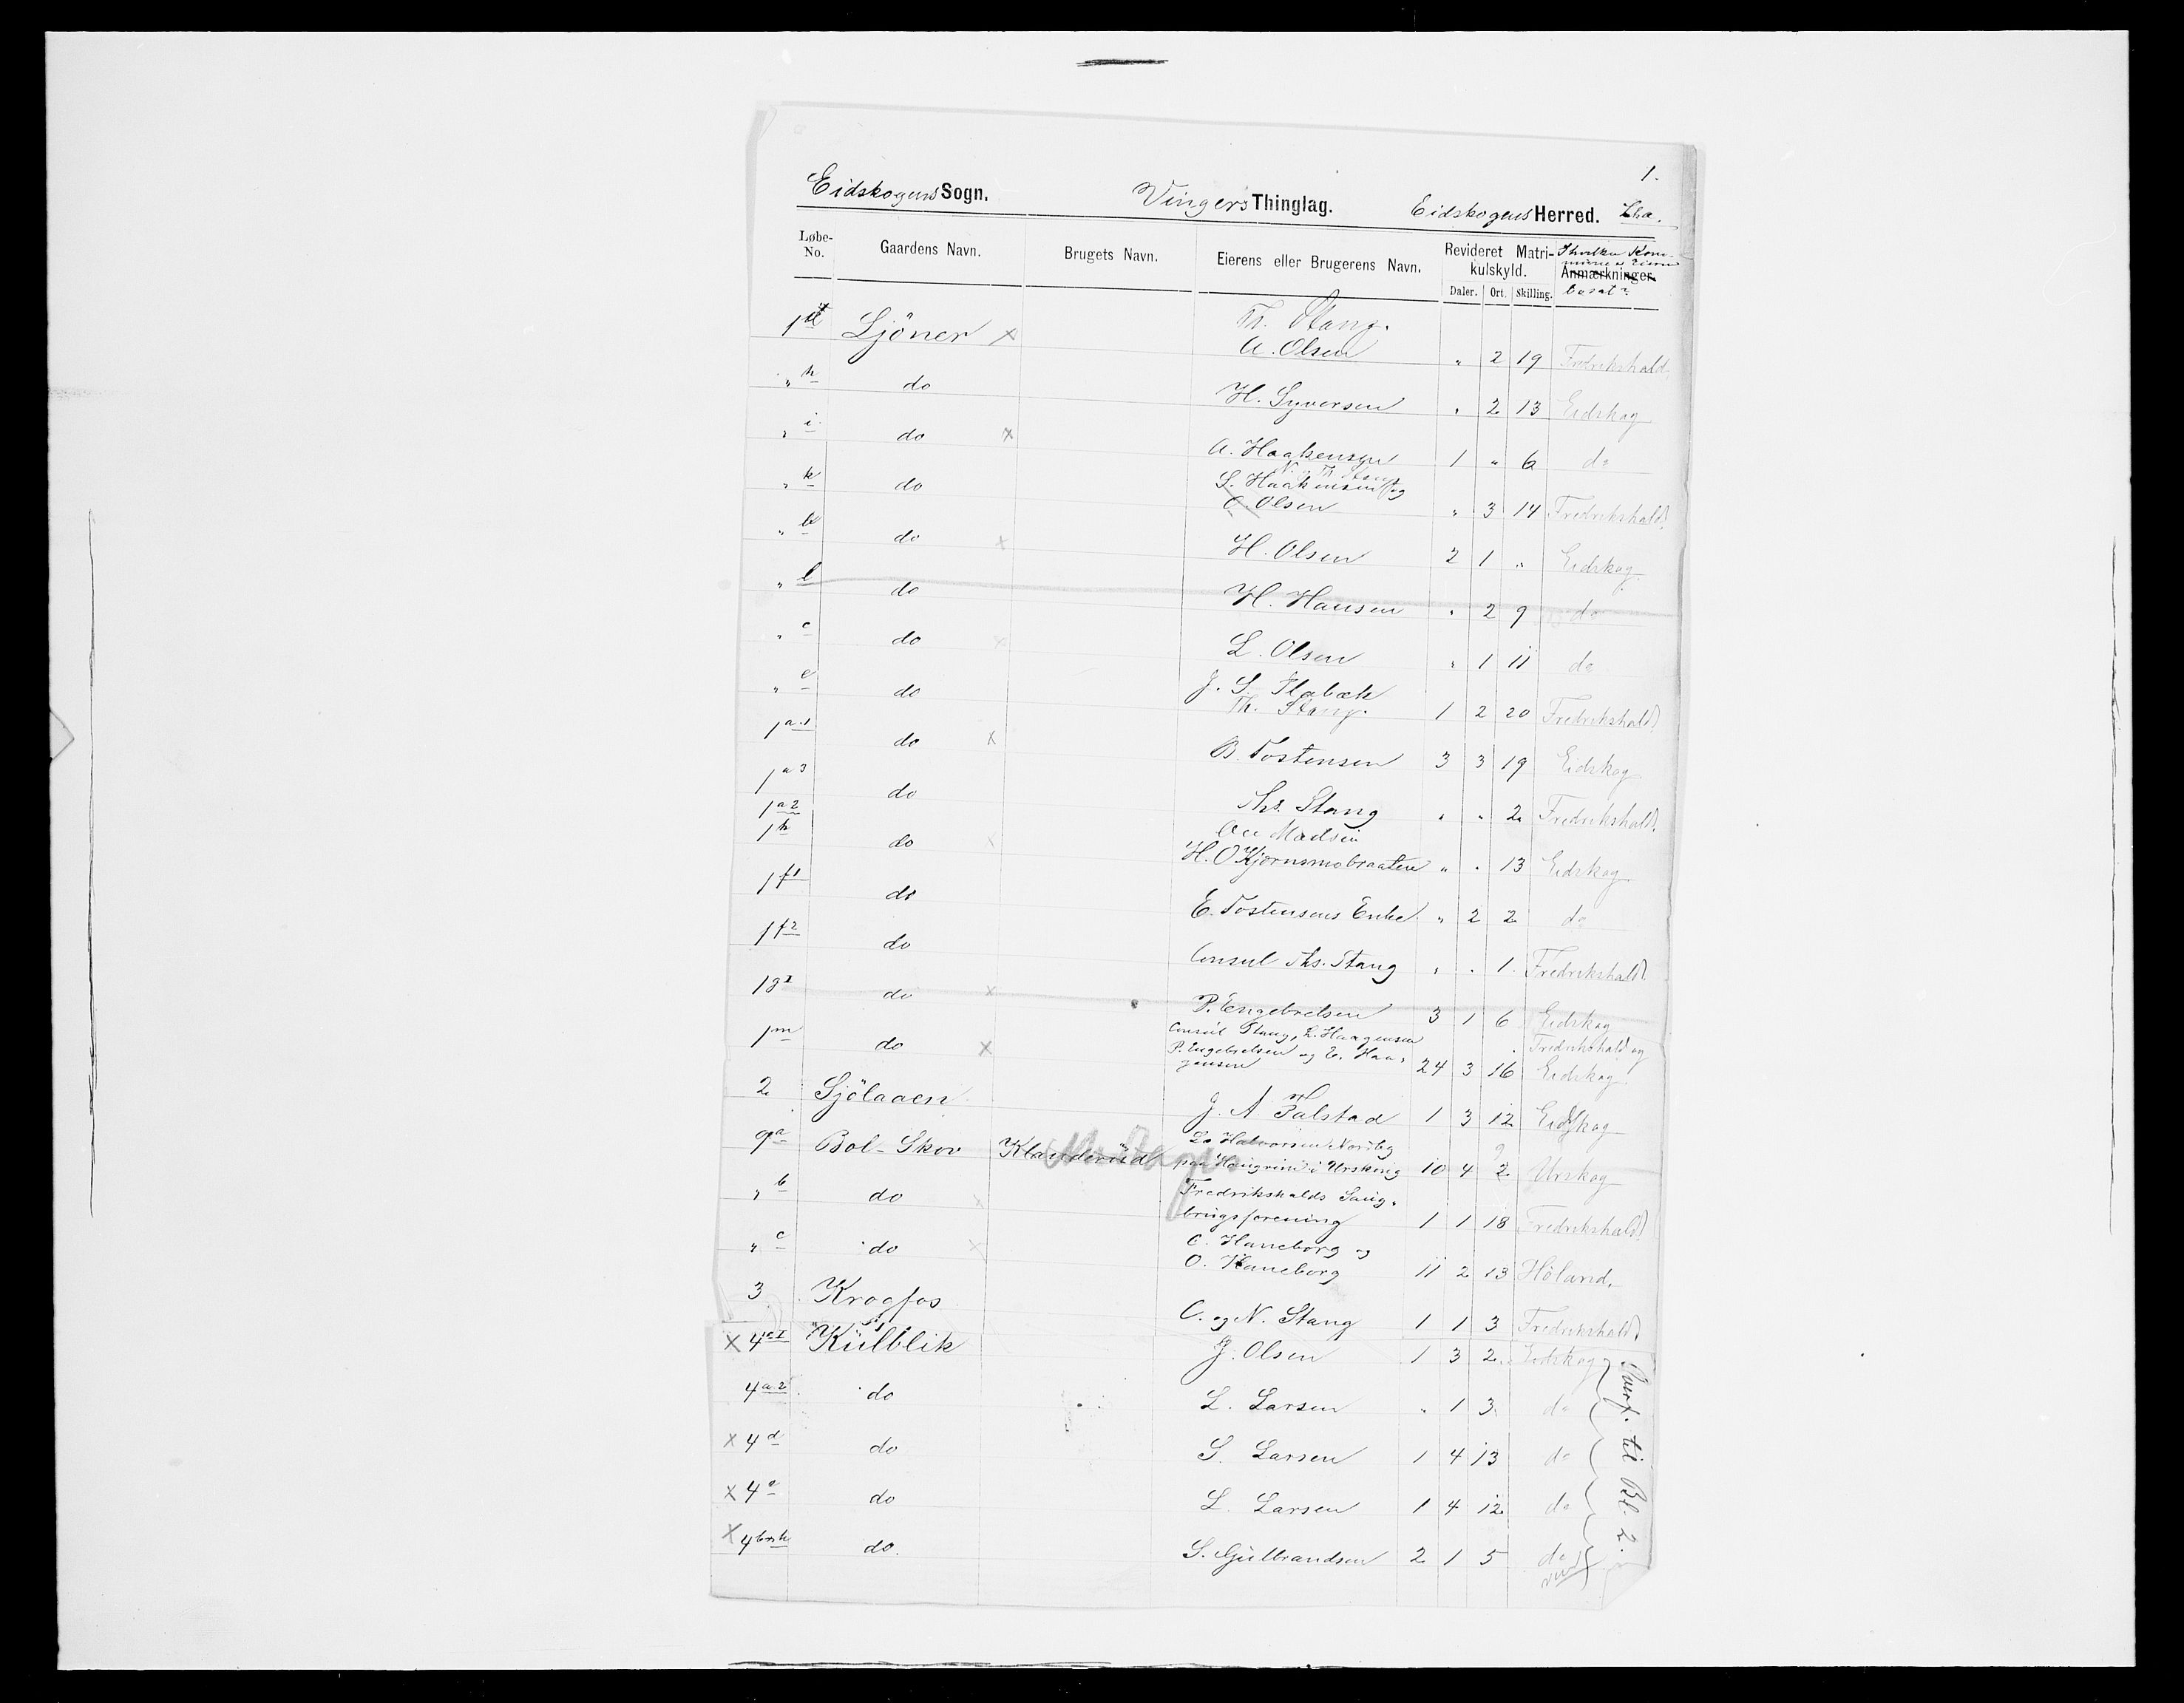 1.
Eidskogens Sogn. Vingers Thinglag. Eidskogens Herred.
Løbe-No. Gaardens Navn. Brugets Navn. Eierens eller Brugerens Navn. Revideret Matrikulskyld. Daler. Ort. Skilling. Anmærkninger. bosat?
Th. Stang.
1 Ljöner × A. Olsen " 2 19 Fredrikshald
" h do H. Syversen " 2 13 Eidskog
" i do × A. Haakensen 1 " 6 do
N. og Th. Stang
" k do S. Haakensen og
O. Olsen " 3 14 Fredrikshald.
" b do × H. Olsen 2 1 " Eidskog
" l do H. Hansen " 2 9 do
" c do × L. Olsen " 1 11 do
" e do J. S. Flabæk
Th. Stang. 1 2 20 Fredrikshald
1 a.1 do × B. Tostensen 3 3 19 Eidskog
1 a 3 do Ths. Stang " " 2 Fredrikshald.
1 a 2
1 h do × Ole Madsen
H. O Kjernsmobraaten " " 13 Eidskog
1 f1 do E. Tostensens Enke " 2 2 do
1 f2 do Consul Ths. Stang " " 1 Fredrikshald
1 g I do × P. Engebretsen 3 1 6 Eidskog
1 m do × Consul Stang, L. Haagensen
P. Engebretsen og E. Haa-
gensen 24 3 16 Fredrikshald og
Eidskog
2 Sjölaaen J. A. Palstad 1 3 12 Eidskog
9 a Bol-Skov Klanderud L. Halvorsen Nordby
paa Haugrim i Urskoug 10 4 2 Urskog
" b do × Fredrikshalds Saug-
brugsforening 1 1 18 Fredrikshald
" c do × C. Haneborg og
O. Haneborg 11 2 13 Höland.
3 Krogfos C. og N. Stang 1 1 3 Fredrikshald
× 4 a I Külblik J. Olsen 1 3 2 Eidskog
4 a 2 do L. Larsen " 1 3 do
× 4 d do S. Larsen 1 4 13 do
× 4 e do L. Larsen 1 4 12 do
× 4 do. S. Gulbrandsen 2 1 5 do
Overf. til Bl. 2.